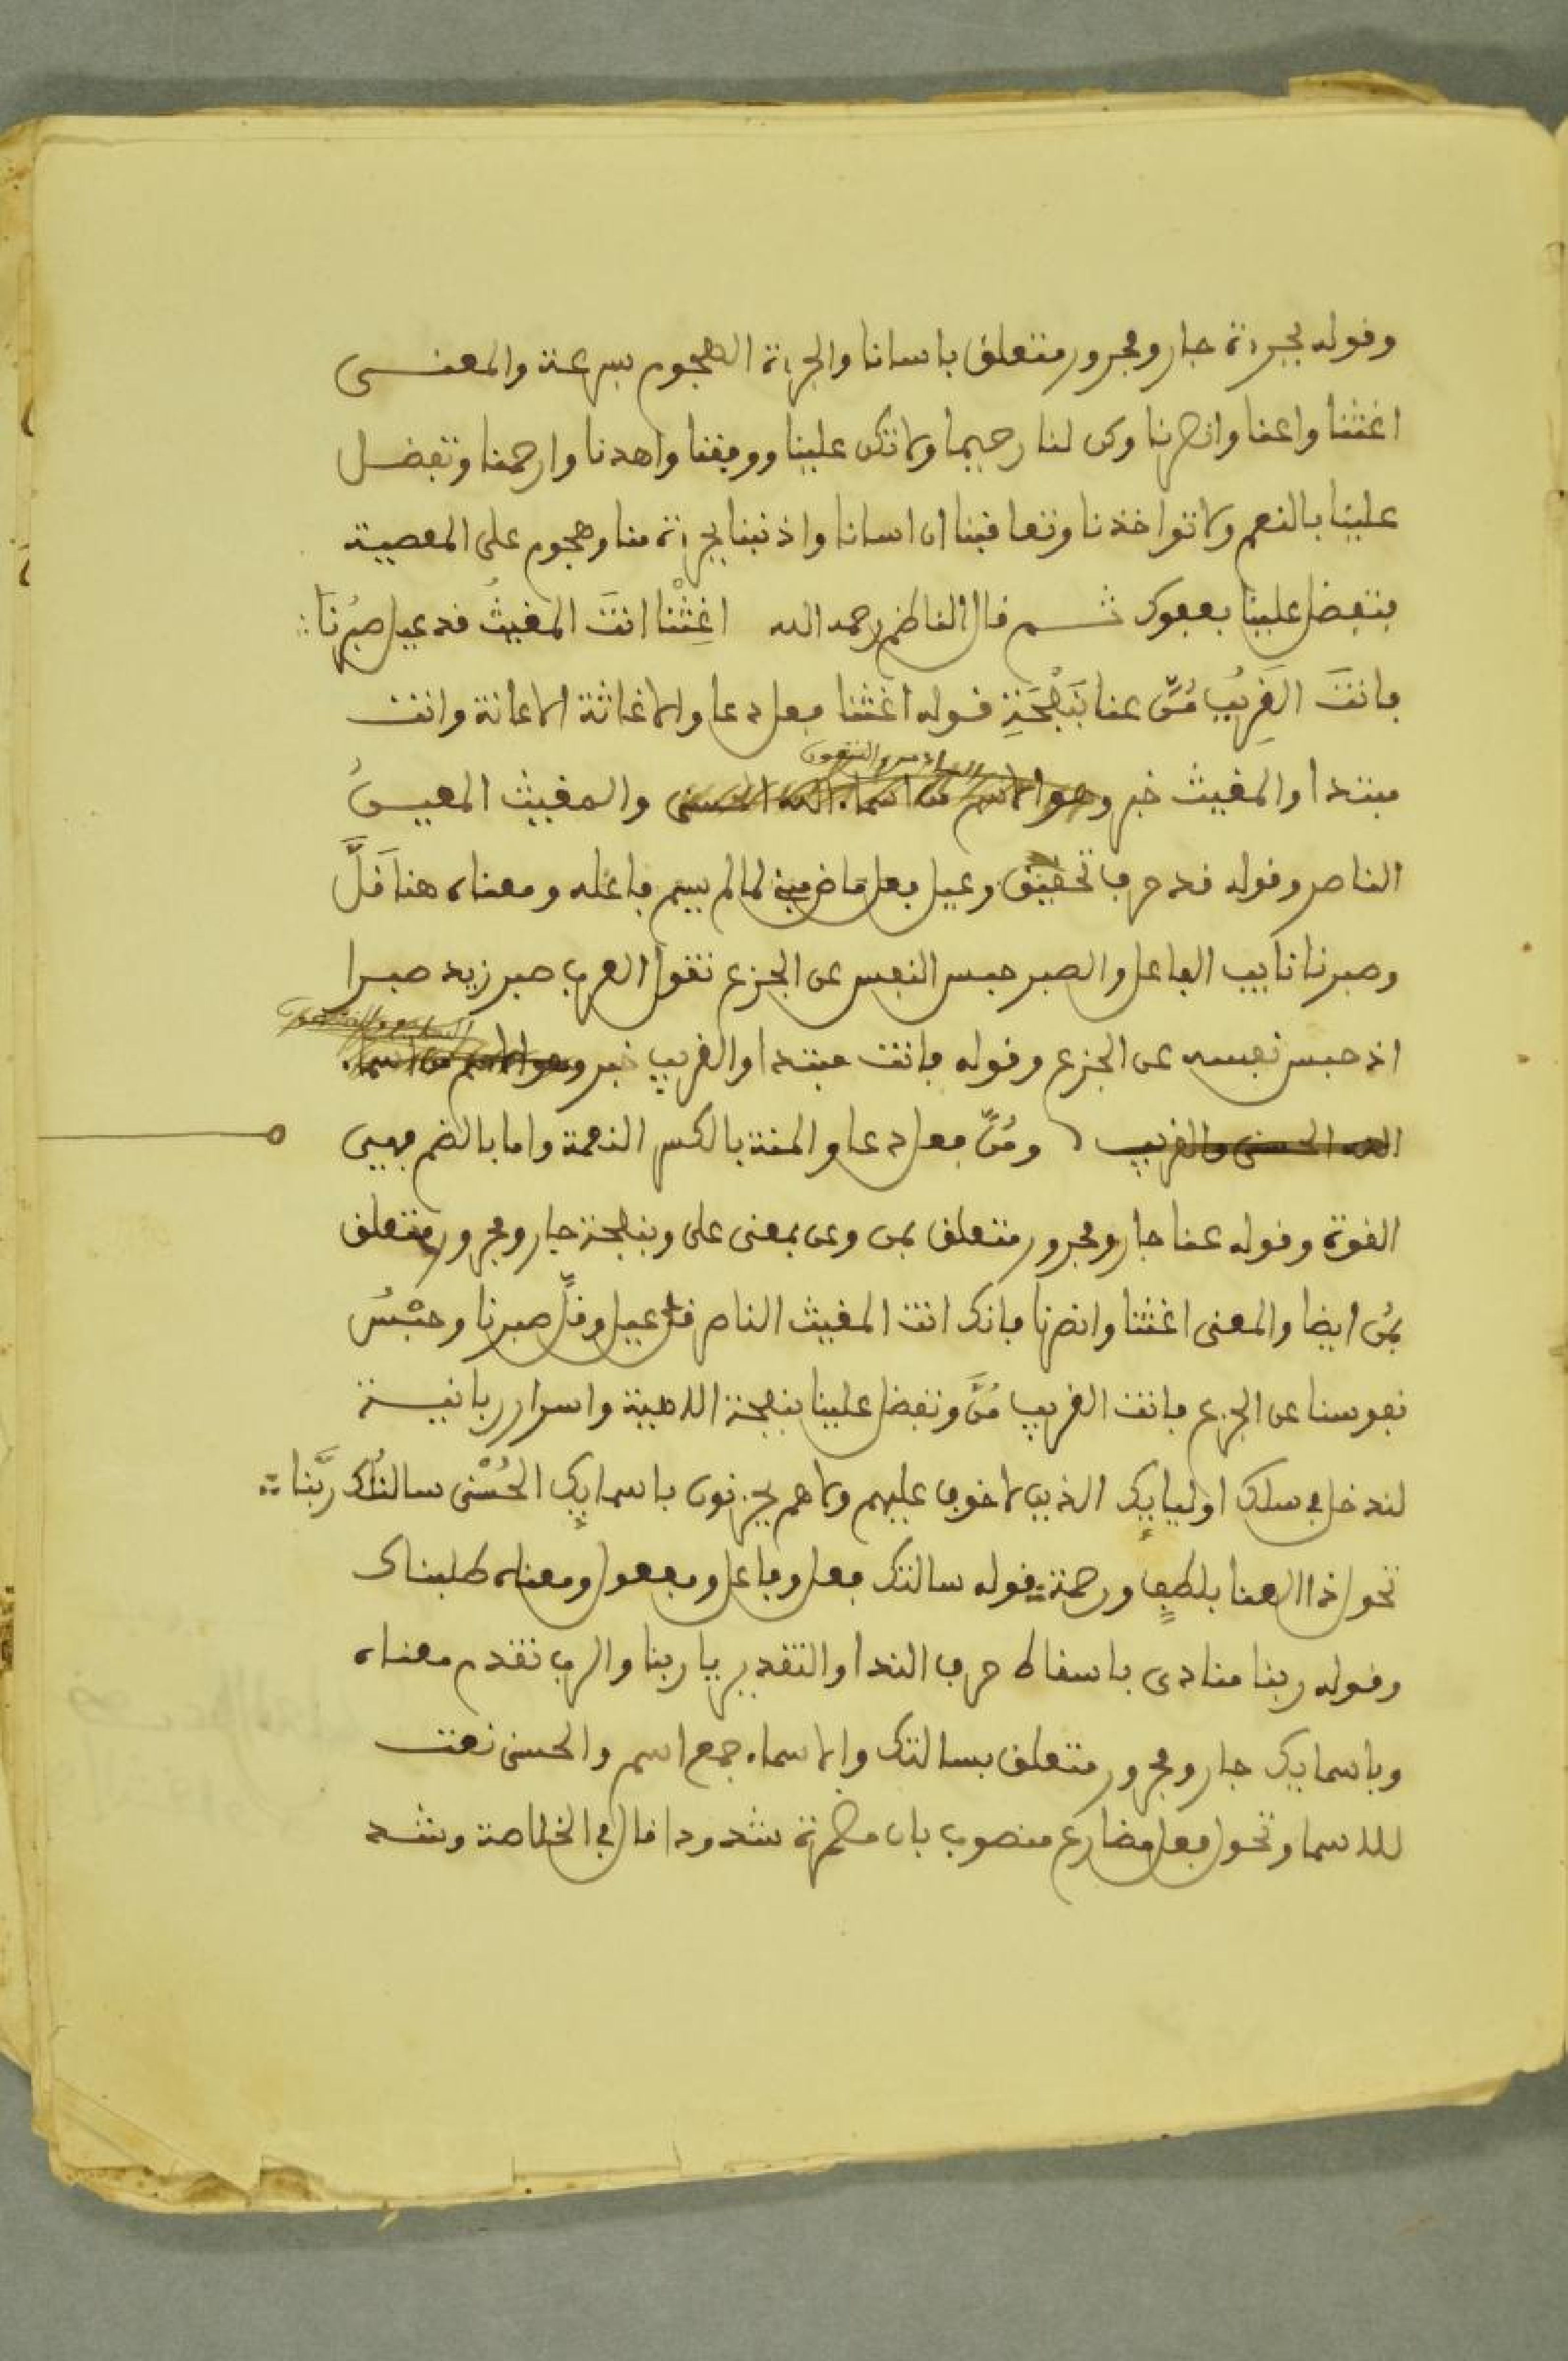 وقوله بجرءة جار ومجرور متعلق باسانا والجرءة الهجوم بسرعة والمعنى
اغثنا واعنا وانصرنا وكن لنا رحيما ولا تكن علينا ووفقنا واهدنا وارحمنا وتفضل
علينا بالنعم ولا تواخذنا وتعاقبنا ان اسانا واذنبنا بجرءة منا وهجوم على المعصية
فتفضل علينا بعفوك ثم قال الناظم رحمه الله اغِثْنا انتَ المغيثُ قد عيل صبرُنَا
فانتَ القَرِيبُ مُنَّ عنا بَنَهْجَةِ قوله اغثنا فعل دعا والاغاثة الاعانة وانت
مبتدا والمغيث خبر وهو الاسم من اسماء الله الحسنى والمغيث المعين
الناصر وقوله قد حرف تحقيق وعيل فعل ماض مبني لما لم يسم فاعله ومعناه هنا قَلَّ
وصبرنا نايب الفاعل والصبر حبس النفس عن الجزع تقول العرب صبر زيد صبرا
اذ حبس نفسه عن الجزع وقوله فانت مبتدا والقريب خبر وهو الاسم من اسماء
الله الحسنى والقريب ومُنَّ فعل دعا والمنة بالكسر النعمة واما بالضم فهيى
القوة وقوله عنا جار ومجرور متعلق بمن وعن بمعنى على وبنهجة جار ومجرور متعلق
بمُن ايضا والمعنى اغثنا وانصرنا فانك انت المغيث الناصر قد عيل وقلَّ صبرنا وحبْسُ
نفوسنا عن الجزع فانت القريب مُنَّ وتفضل علينا بنهجة اللاهية واسرار ربانيـة
لندخل في سلك اوليايك الذين لا خوف عليهم ولا هم يحزنون باسمايِك الحُسْنى سالنُك ربَّنا
تحول ذا العنا بلطفٍ ورحمة قوله سالنك فعل وفاعل ومفعول ومعناه طلبناك
وقوله ربنا منادى باسقاط حرف الندا والتقدير يا ربنا والرب تقدم معناه
وباسمايك جار ومجرور متعلق بسالتك والاسماء جمع اسم والحسنى نعت
للاسما وتحول فعل مضارع منصوب بان مضمرة شدودا قال في الخلاصة وشد